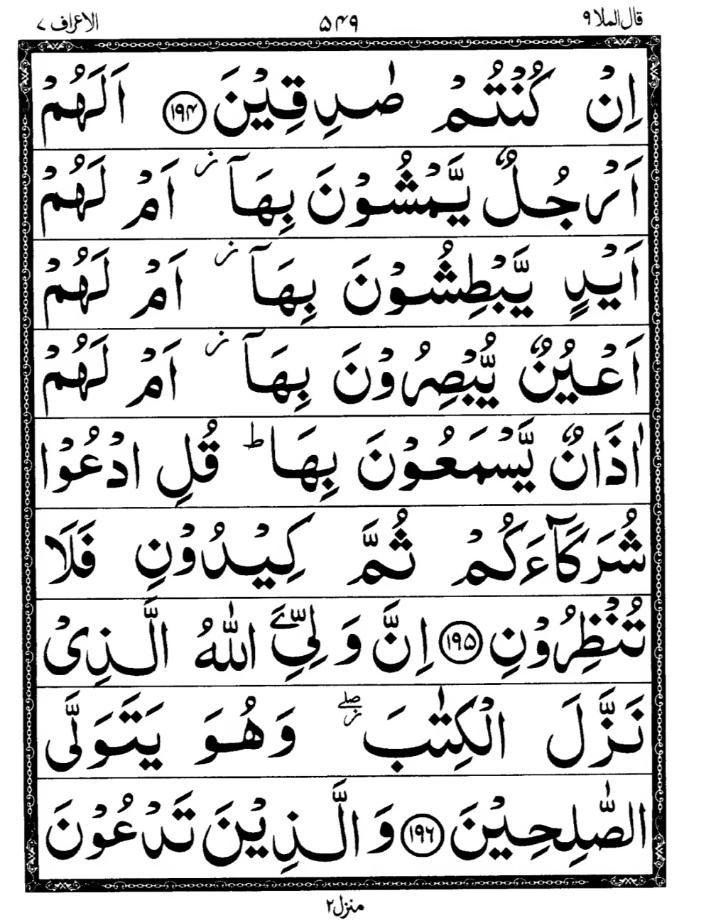 قال الملا ۹ ۵۴۹ الاعراف ۷
اِنْ كُنْتُمْ صٰدِقِیْنَ ﴿۱۹۴﴾ اَلَهُمْ
اَرْجُلٌ یَّمْشُوْنَ بِهَاۤ ؗ اَمْ لَهُمْ
اَیْدٍ یَّبْطِشُوْنَ بِهَاۤ ؗ اَمْ لَهُمْ
اَعْیُنٌ یُّبْصِرُوْنَ بِهَاۤ ؗ اَمْ لَهُمْ
اٰذَانٌ یَّسْمَعُوْنَ بِهَا ؕ قُلِ ادْعُوْا
شُرَكَآءَكُمْ ثُمَّ كِیْدُوْنِ فَلَا
تُنْظِرُوْنِ ﴿۱۹۵﴾ اِنَّ وَلِیَِّۧ اللّٰهُ الَّذِیْ
نَزَّلَ الْكِتٰبَ ۖؗ وَهُوَ یَتَوَلَّی
الصّٰلِحِیْنَ ﴿۱۹۶﴾ وَالَّذِیْنَ تَدْعُوْنَ
منزل ۲